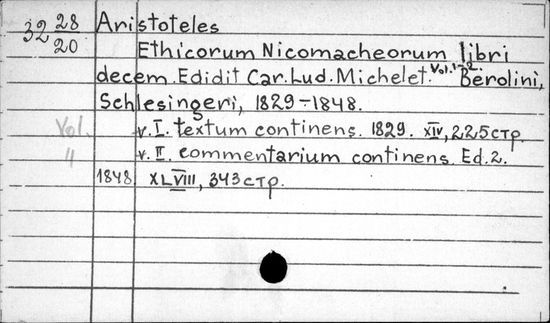 32 28/20
Aristoteles
Ethicorum Nicomacheorum libri
decem. Edidit Car. Lud. Michelet. Vol. 1-2 Berolini,
Schlesingeri, 1829-1848.
v. I. textum continens. 1829. XIV, 225 стр.
v. II. commentarium continens. Ed. 2.
1848 XLVIII, 343 стр.
Vol.
"